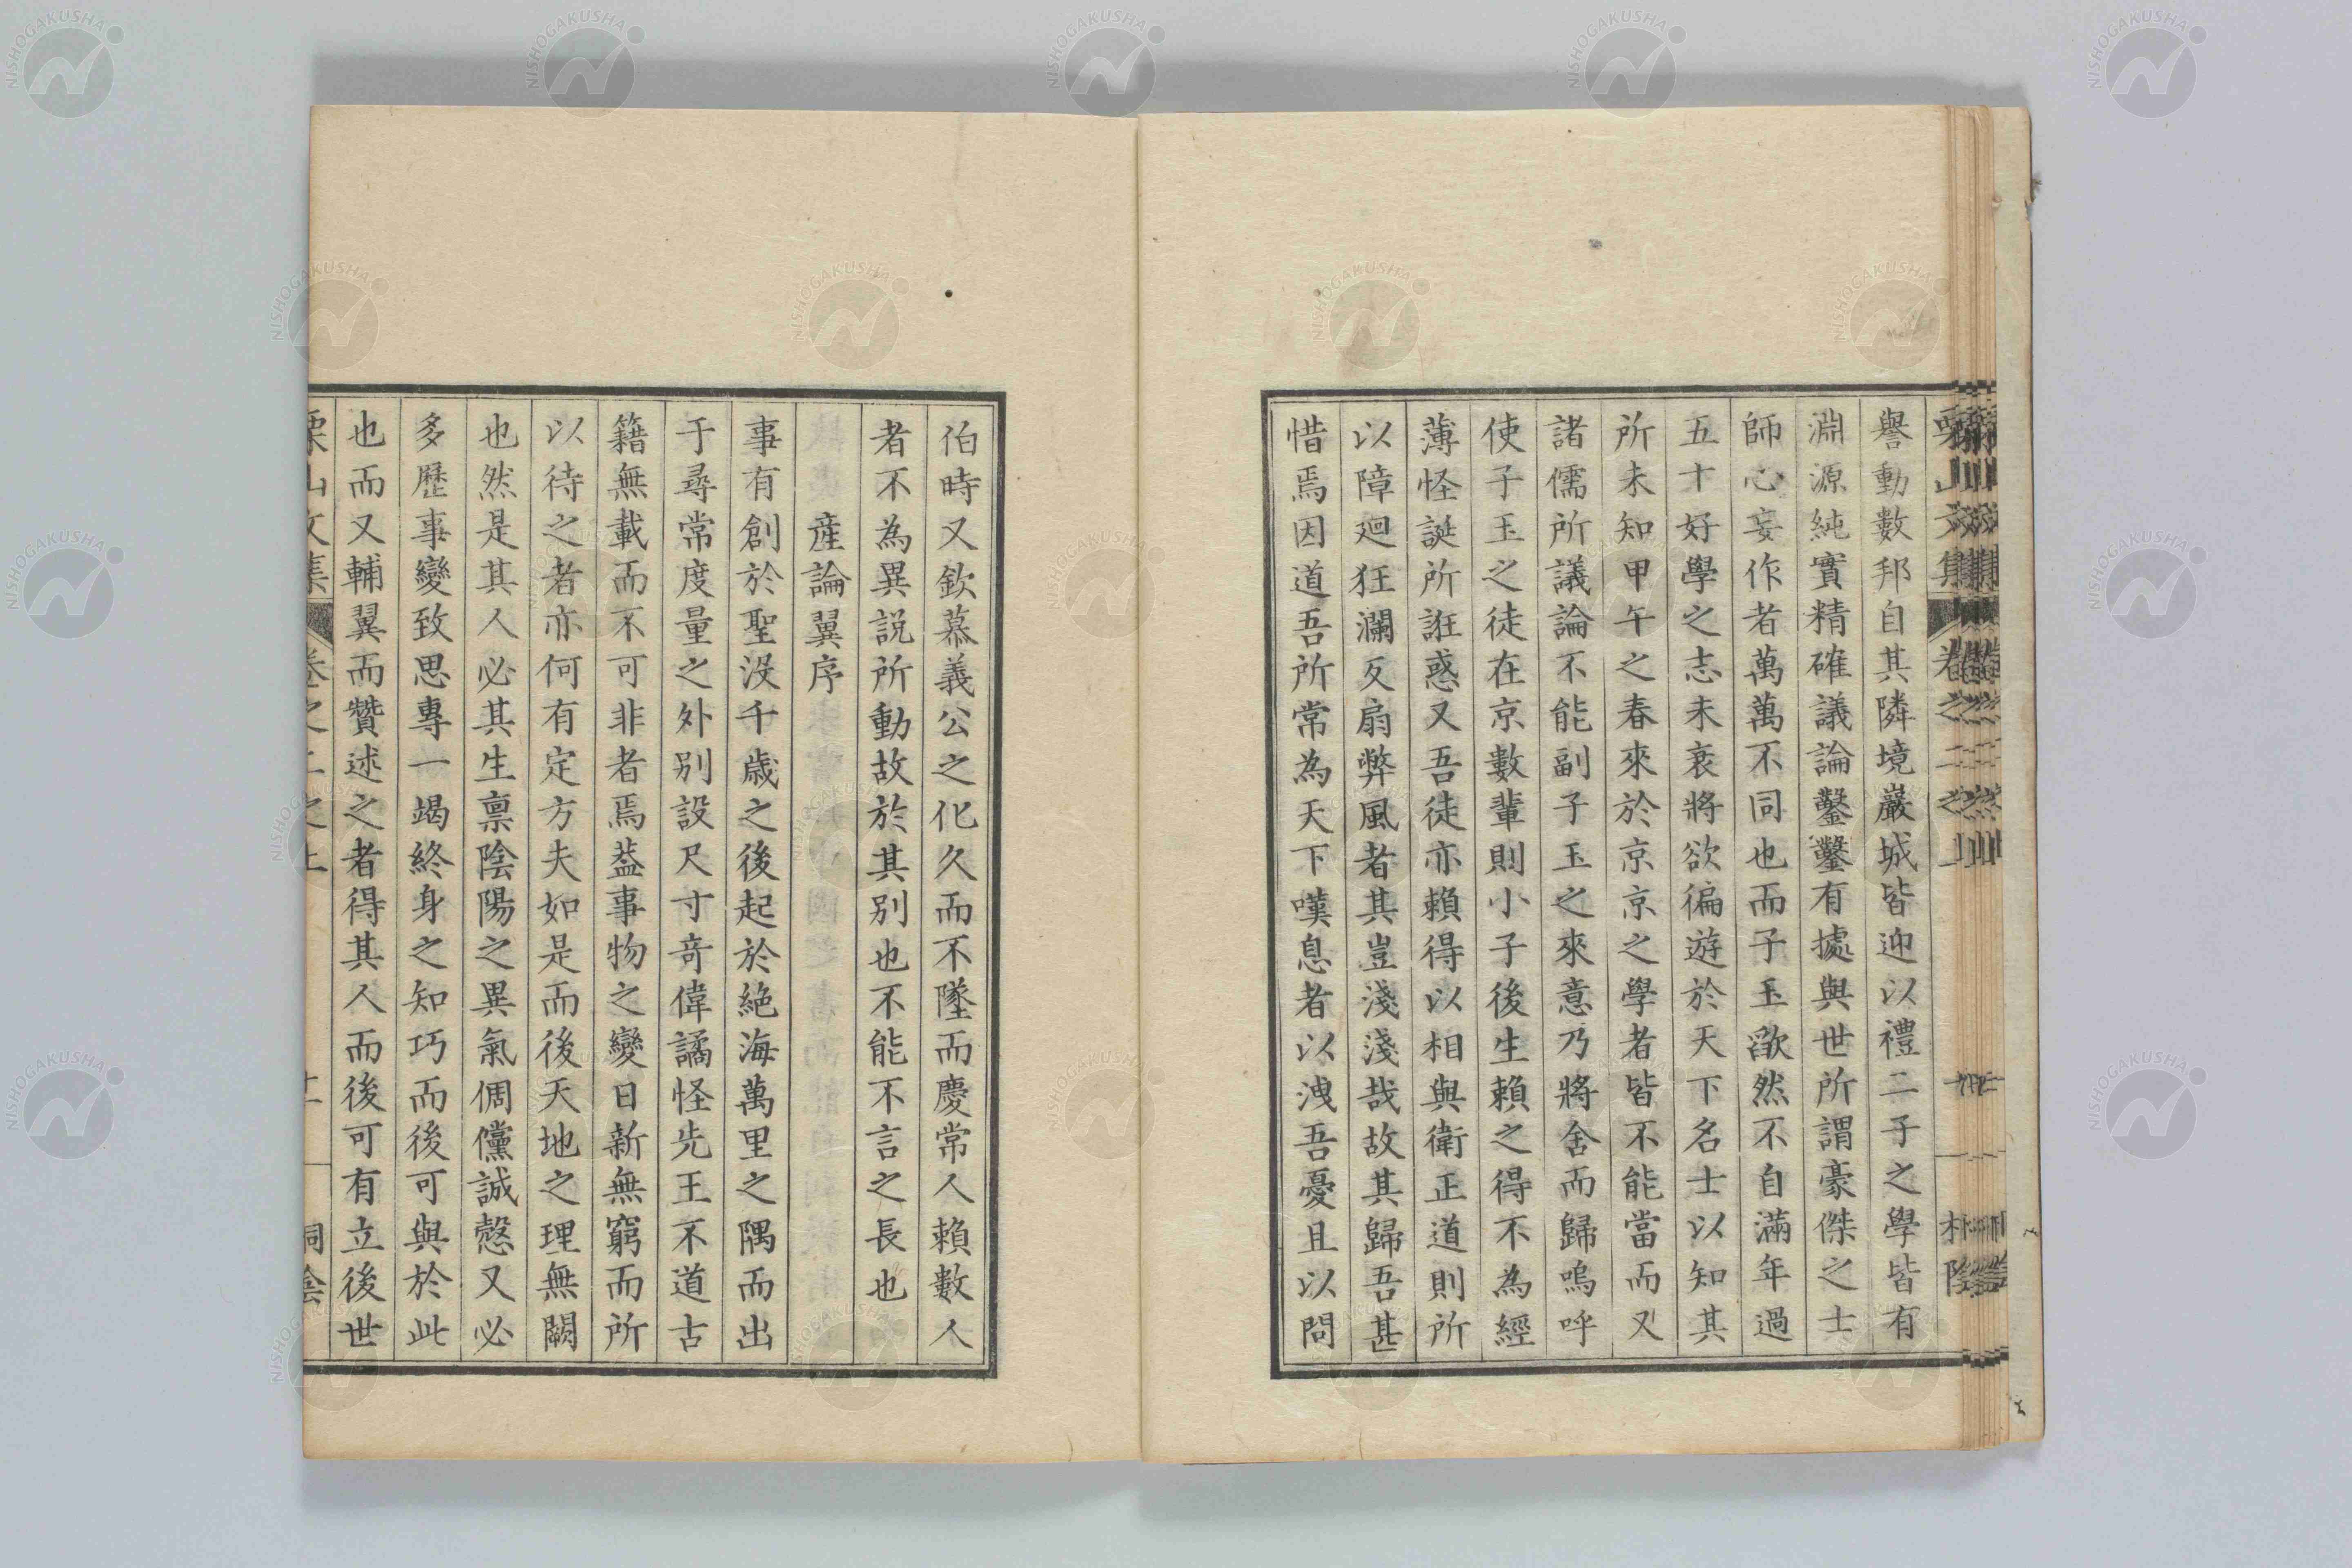 譽動數邦自其隣境巖城皆迎以禮二子之學皆有
淵源純實精確議論鑿鑿有據與世所謂豪傑之士
師心妄作者萬萬不同也而子玉欿然不自滿年過
五十好學之志未衰將欲徧遊於天下名士以知其
所未知甲午之春來於京京之學者皆不能當而又
諸儒所議論不能副子玉之來意乃將舍而歸嗚呼
使子玉之徒在京數輩則小子後生賴之得不為經
薄怪誕所誑惑又吾徒亦賴得以相與衛正道則所
以障廻狂瀾反扇弊風者其豈淺淺哉故其歸吾甚
惜焉因道吾所常為天下嘆息者以洩吾憂且以問
伯時又欽慕義公之化久而不墜而慶常人賴數人
者不為異説所動故於其別也不能不言之長也
産論翼序
事有創於聖没千歲之後起於絶海萬里之隅而出
于尋常度量之外別設尺寸竒偉譎怪先王不道古
籍無載而不可非者焉葢事物之變日新無窮而所
以待之者亦何有定方夫如是而後天地之理無闕
也然是其人必其生禀陰陽之異氣倜儻誠慤又必
多歷事變致思專一竭終身之知巧而後可與於此
也而又輔翼而贊述之者得其人而後可有立後世
栗山文集 卷之二之上
NISHOGAKUSHA